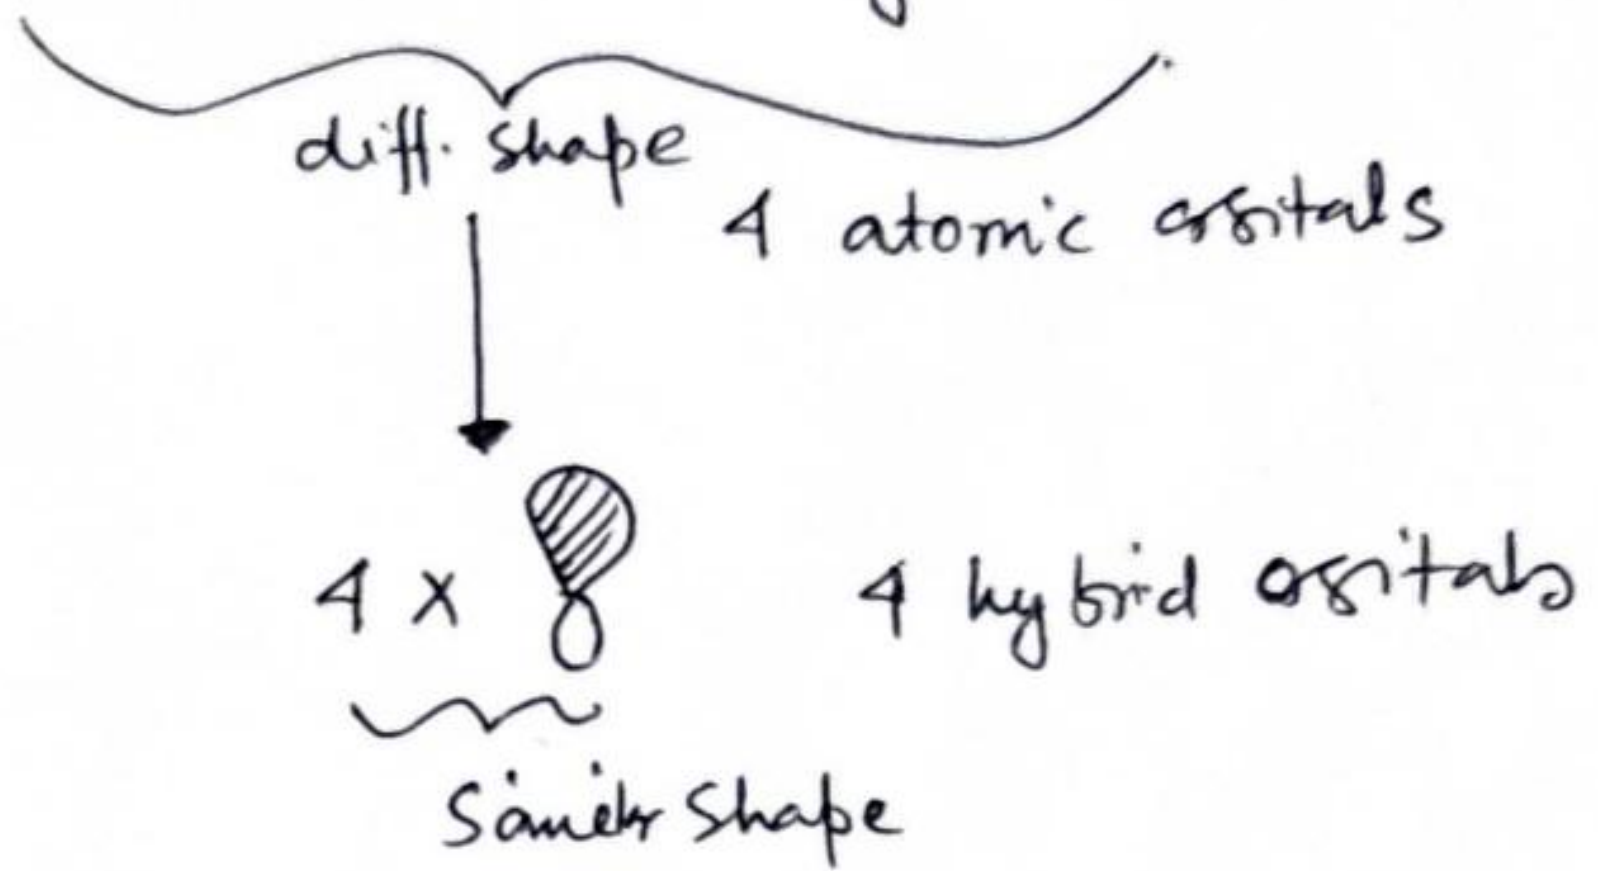 diff. shape
4 atomic orbitals
4 x
4 hybrid orbitals
Similar Shape